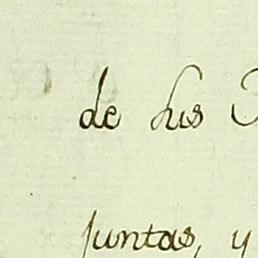 de sus
juntas, y